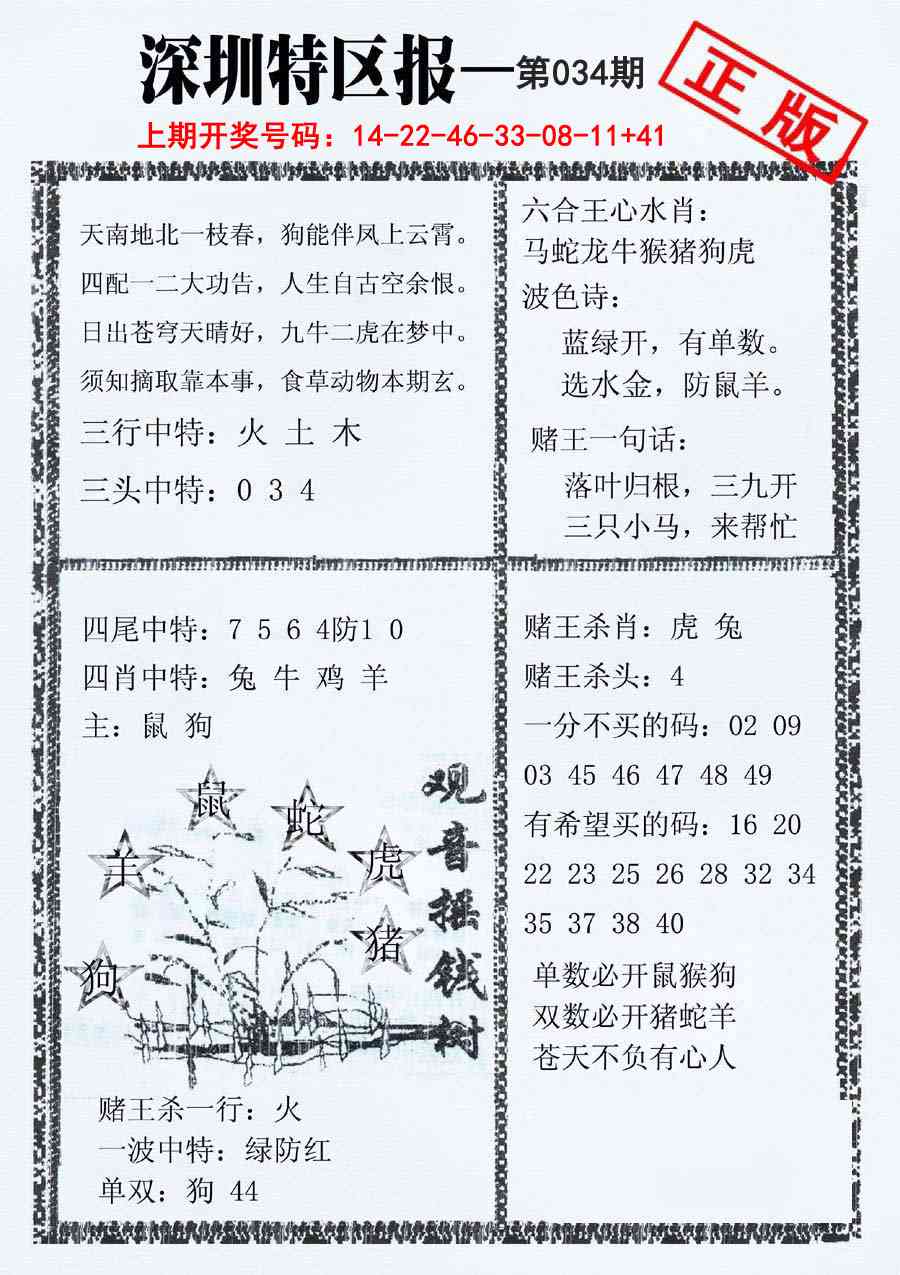 深圳特区报—第034期
正版
上期开奖号码：14-22-46-33-08-11+41
天南地北一枝春，狗能伴凤上云霄。
四配一二大功告，人生自古空余恨。
日出苍穹天晴好，九牛二虎在梦中。
须知摘取靠本事，食草动物本期玄。
三行中特：火 土 木
三头中特：0 3 4
六合王心水肖：
马蛇龙牛猴猪狗虎
波色诗：
蓝绿开，有单数。
选水金，防鼠羊。
赌王一句话：
落叶归根，三九开
三只小马，来帮忙
四尾中特：7 5 6 4防1 0
四肖中特：兔 牛 鸡 羊
主：鼠 狗
鼠
蛇
羊
虎
猪
狗
观音摇钱树
赌王杀一行：火
一波中特：绿防红
单双：狗 44
赌王杀肖：虎 兔
赌王杀头：4
一分不买的码：02 09
03 45 46 47 48 49
有希望买的码：16 20
22 23 25 26 28 32 34
35 37 38 40
单数必开鼠猴狗
双数必开猪蛇羊
苍天不负有心人